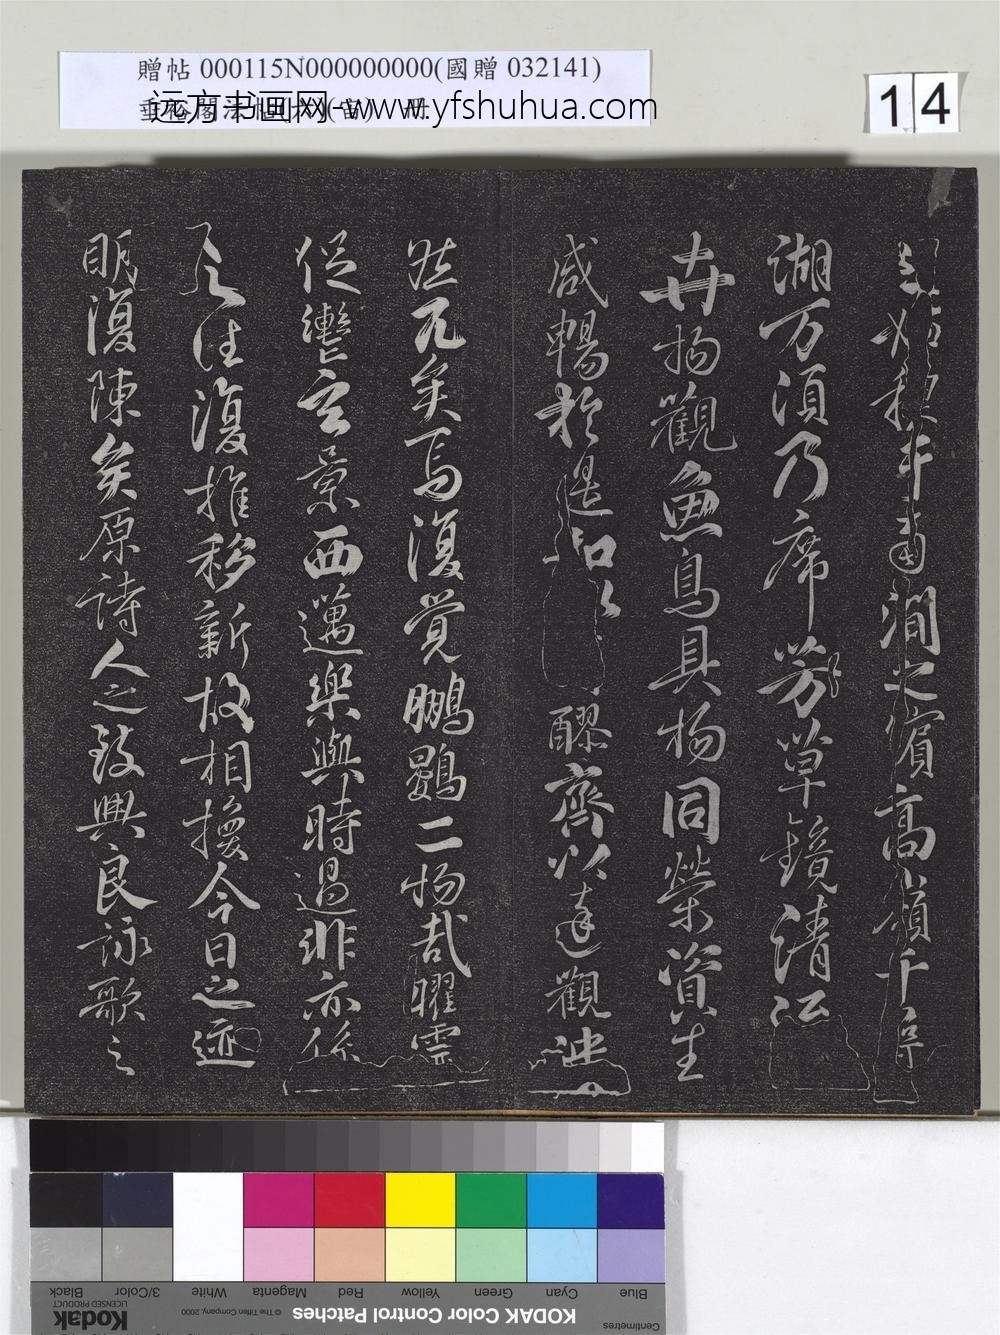 贈帖 000115N000000000(國贈 032141)
远方书画网-www.yfshuhua.com
14
始禊于南澗之濱高嶺千尋
湖万頃乃席芳草鏡清流
卉物觀魚鳥具物同榮資生
咸暢於是和以醪齊以達觀泱
然兀矣焉復覺鵬鷃二物哉曜靈
促轡玄景西邁樂與時過悲亦係
之往復推移新故相換今日之迹
明復陳矣原詩人之致興良詠歌之
Blue
Cyan
Green
Yellow
Red
Magenta
White
3/Color
Black
Centimetres
KODAK Color Control Patches
© The Tiffen Company, 2000
Kodak
LICENSED PRODUCT